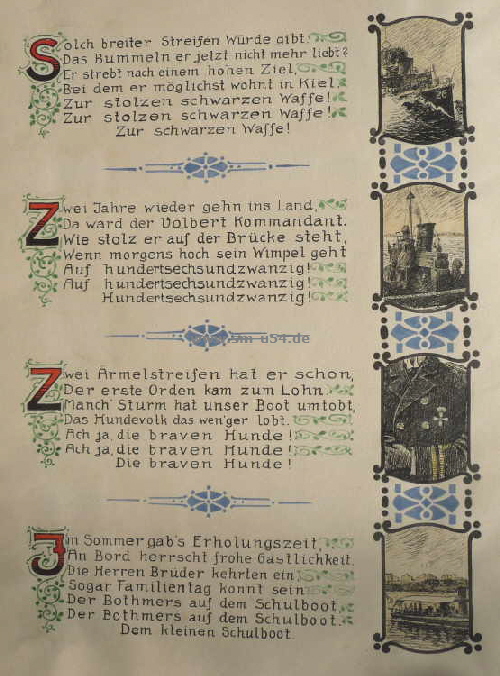 Solch breiter Streifen Würde gibt.
Das Bummeln er jetzt nicht mehr liebt?
Er strebt nach einem hohen Ziel,
Bei dem er möglichst wohnt in Kiel
Zur stolzen schwarzen Waffe!
Zur stolzen schwarzen Waffe!
Zur schwarzen Waffe!
Zwei Jahre wieder gehn ins Land,
Da ward der Volbert Kommandant.
Wie stolz er auf der Brücke steht,
Wenn morgens hoch sein Wimpel geht
Auf hundertsechsundzwanzig!
Auf hundertsechsundzwanzig!
Hundertsechsundzwanzig!
sm-u54.de
Zwei Ärmelstreifen hat er schon,
Der erste Orden kam zum Lohn.
Manch' Sturm hat unser Boot umtobt,
Das Hundevolk das wen'ger lobt.
Ach ja, die braven Hunde!
Ach ja, die braven Hunde!
Die braven Hunde!
Im Sommer gab's Erholungszeit,
An Bord herrscht frohe Gastlichkeit.
Die Herren Brüder kehrten ein
Sogar Familientag konnt sein
Der Bothmers auf dem Schulboot,
Der Bothmers auf dem Schulboot.
Dem kleinen Schulboot.